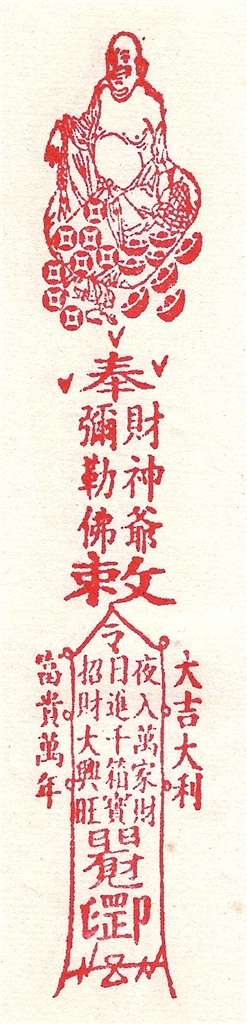 奉
財神爺
彌勒佛
敕
令
大吉大利
夜入萬家財
日進千箱寶
招財大興旺
富貴萬年